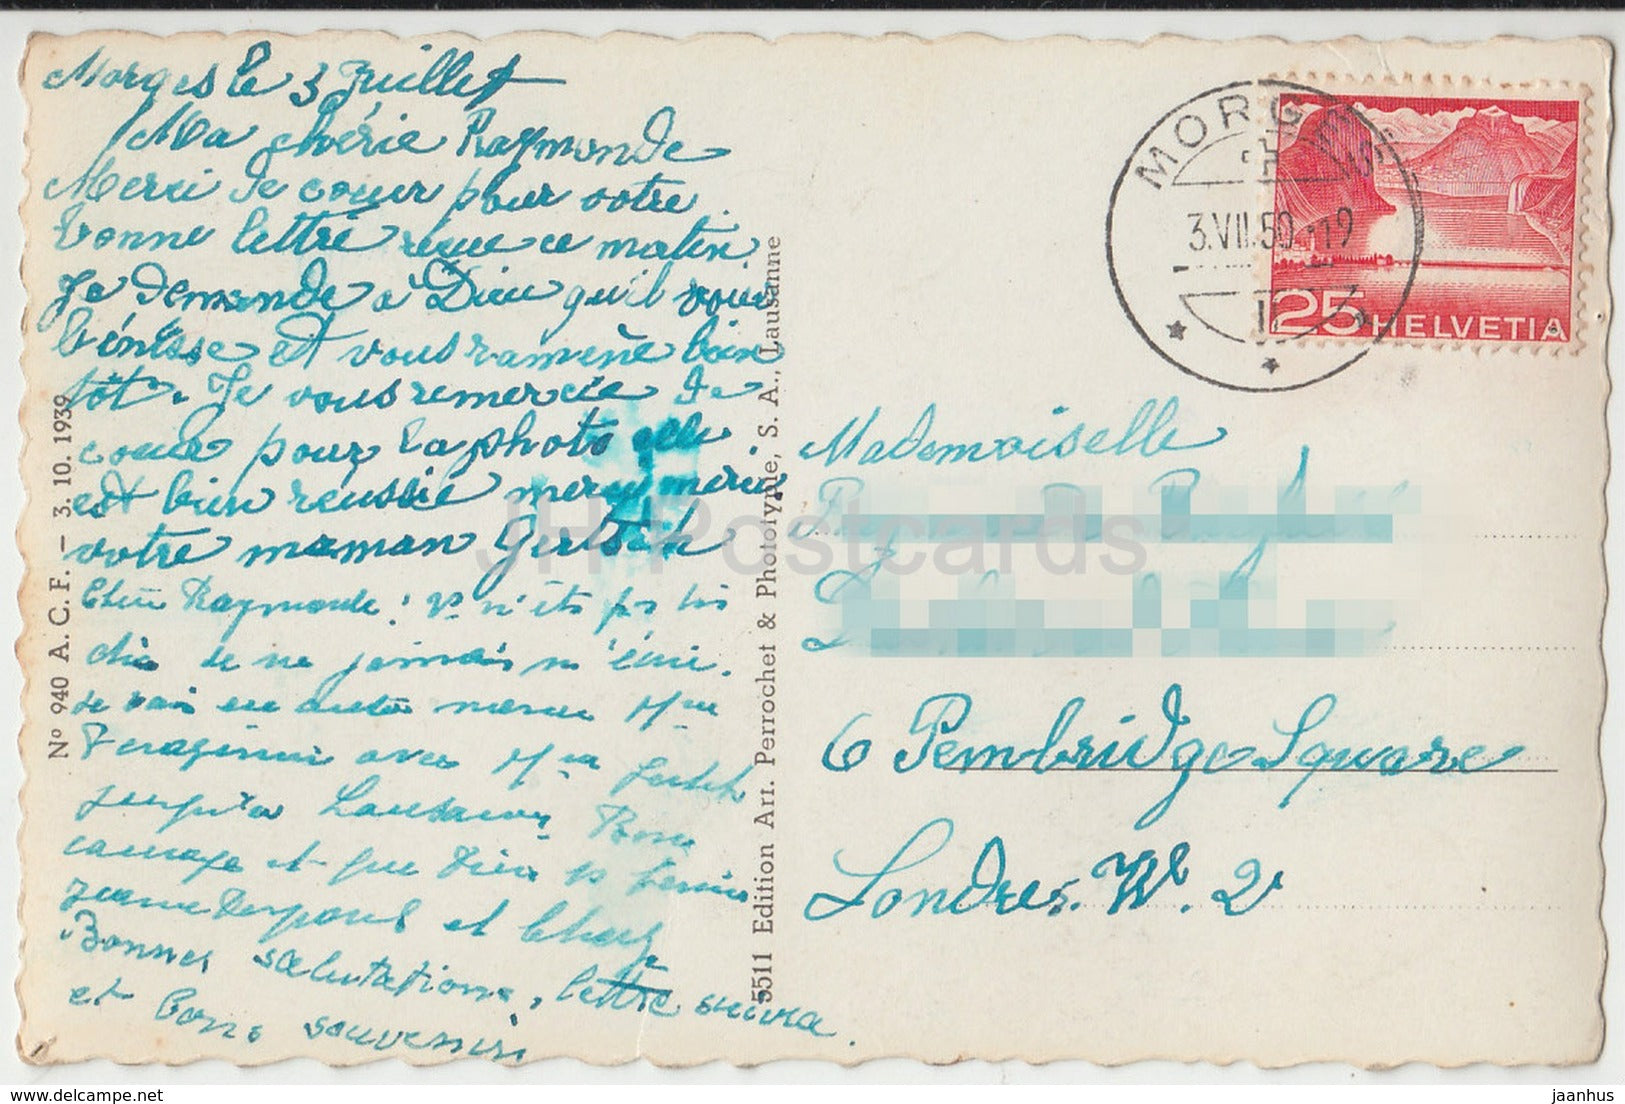 Morges le 3 Juillet
Ma chérie Raymonde
Merci de coeur pour votre
bonne lettre reçue ce matin
Je demande à Dieu qu'il vous
bénisse et vous ramène bien
tôt. Je vous remercie de
coeur pour la photo elle
est bien réussie merci merci
votre maman Gertsch
Chère Raymonde! vs n'êts ps
de ne jamais m'écrire.
Je vais en auto Mme
avec Mme Gertsch
jusqu'à Lausanne Bon
courage et que Dieu vs bénisse
et
Bonnes salutations, lettre suivra.
et bons souvenirs
No 940 A. C. F. – 3. 10. 1939
5511 Edition Art. Perrochet & Phototypie, S. A., Lausanne
MORGES
3.VII.50.-19
25 HELVETIA
Mademoiselle
6 Pembridge Square
Londres. W. 2
JH Postcards
jaanhus